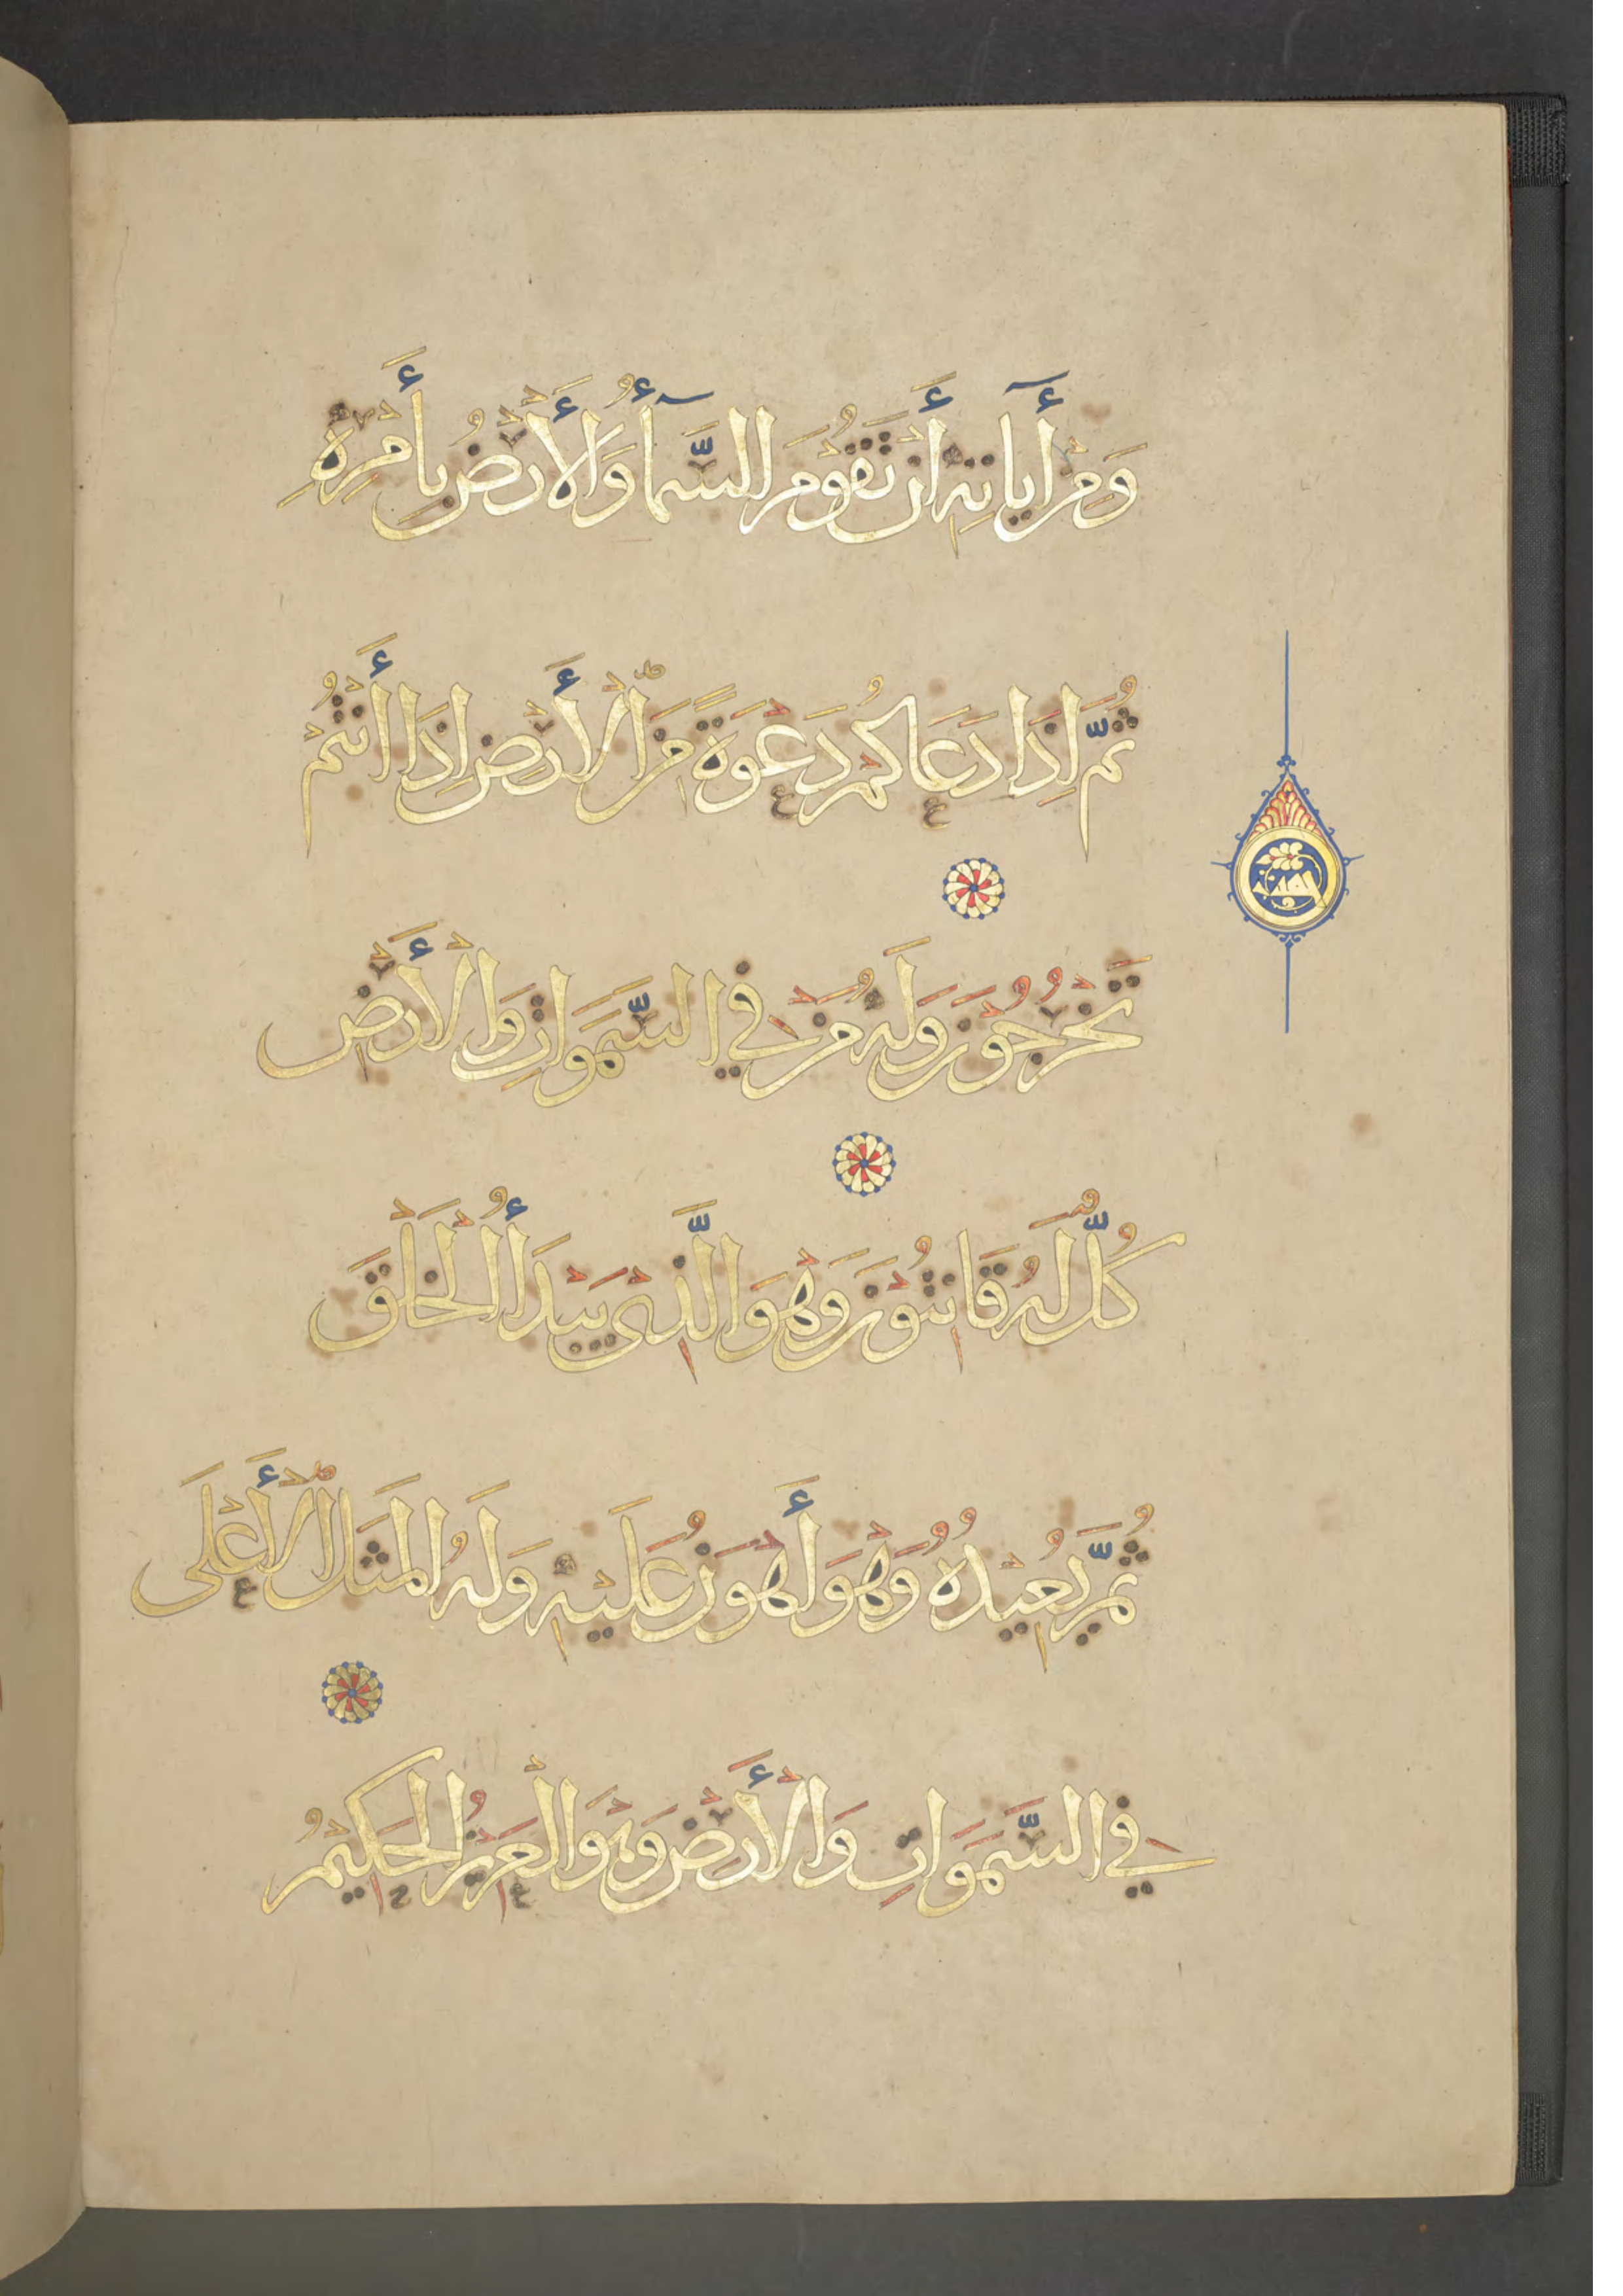 وَمِنْ أٰيَاتِهِ أَنْ تَقُومَ السَّمَآءُ وَالْأَرْضُ بِأَمْرِهِ
ثُمَّ إِذَا دَعَاكُمْ دَعْوَةً مِنَ الْأَرْضِ إِذَا أَنْتُمْ
تَخْرُجُونَ وَلَهُ مَنْ فِي السَّمَوَاتِ وَالْأَرْضِ
كُلٌّ لَهُ قَانِتُونَ وَهُوَ الَّذِي يَبْدَأُ الْخَلْقَ
ثُمَّ يُعِيدُهُ وَهُوَ أَهْوَنُ عَلَيْهِ وَلَهُ الْمَثَلُ الْأَعْلَى
فِي السَّمَوَاتِ وَالْأَرْضِ وَهُوَ الْعَزِيزُ الْحَكِيمُ